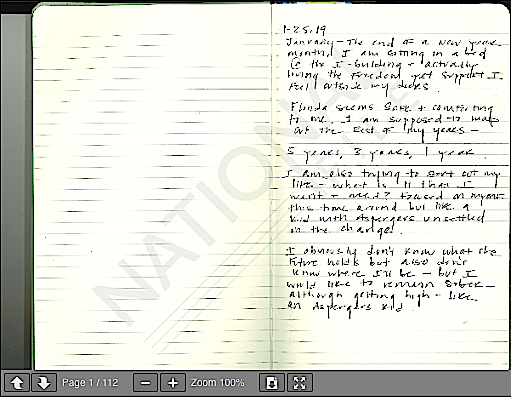 1-25.19
January - The end of a new year
month, I am sitting in a bed
@ the I-building + actually
living the freedom yet support I
feel outside my doors.
Florida seems safe + comforting
to me. I am supposed to map
out the rest of my years -
5 years, 3 years, 1 year.
I am also trying to sort out my
life - what is it that I
want + need? Focused on myself
this time around but like a
kid with Aspergers unsettled
in the change!
I obviously don't know what the
future holds but also don't
know where I'll be - but I
would like to remain sober -
although getting high - like
an Aspergers kid
NATIONAL
Page 1 / 112 Zoom 100%